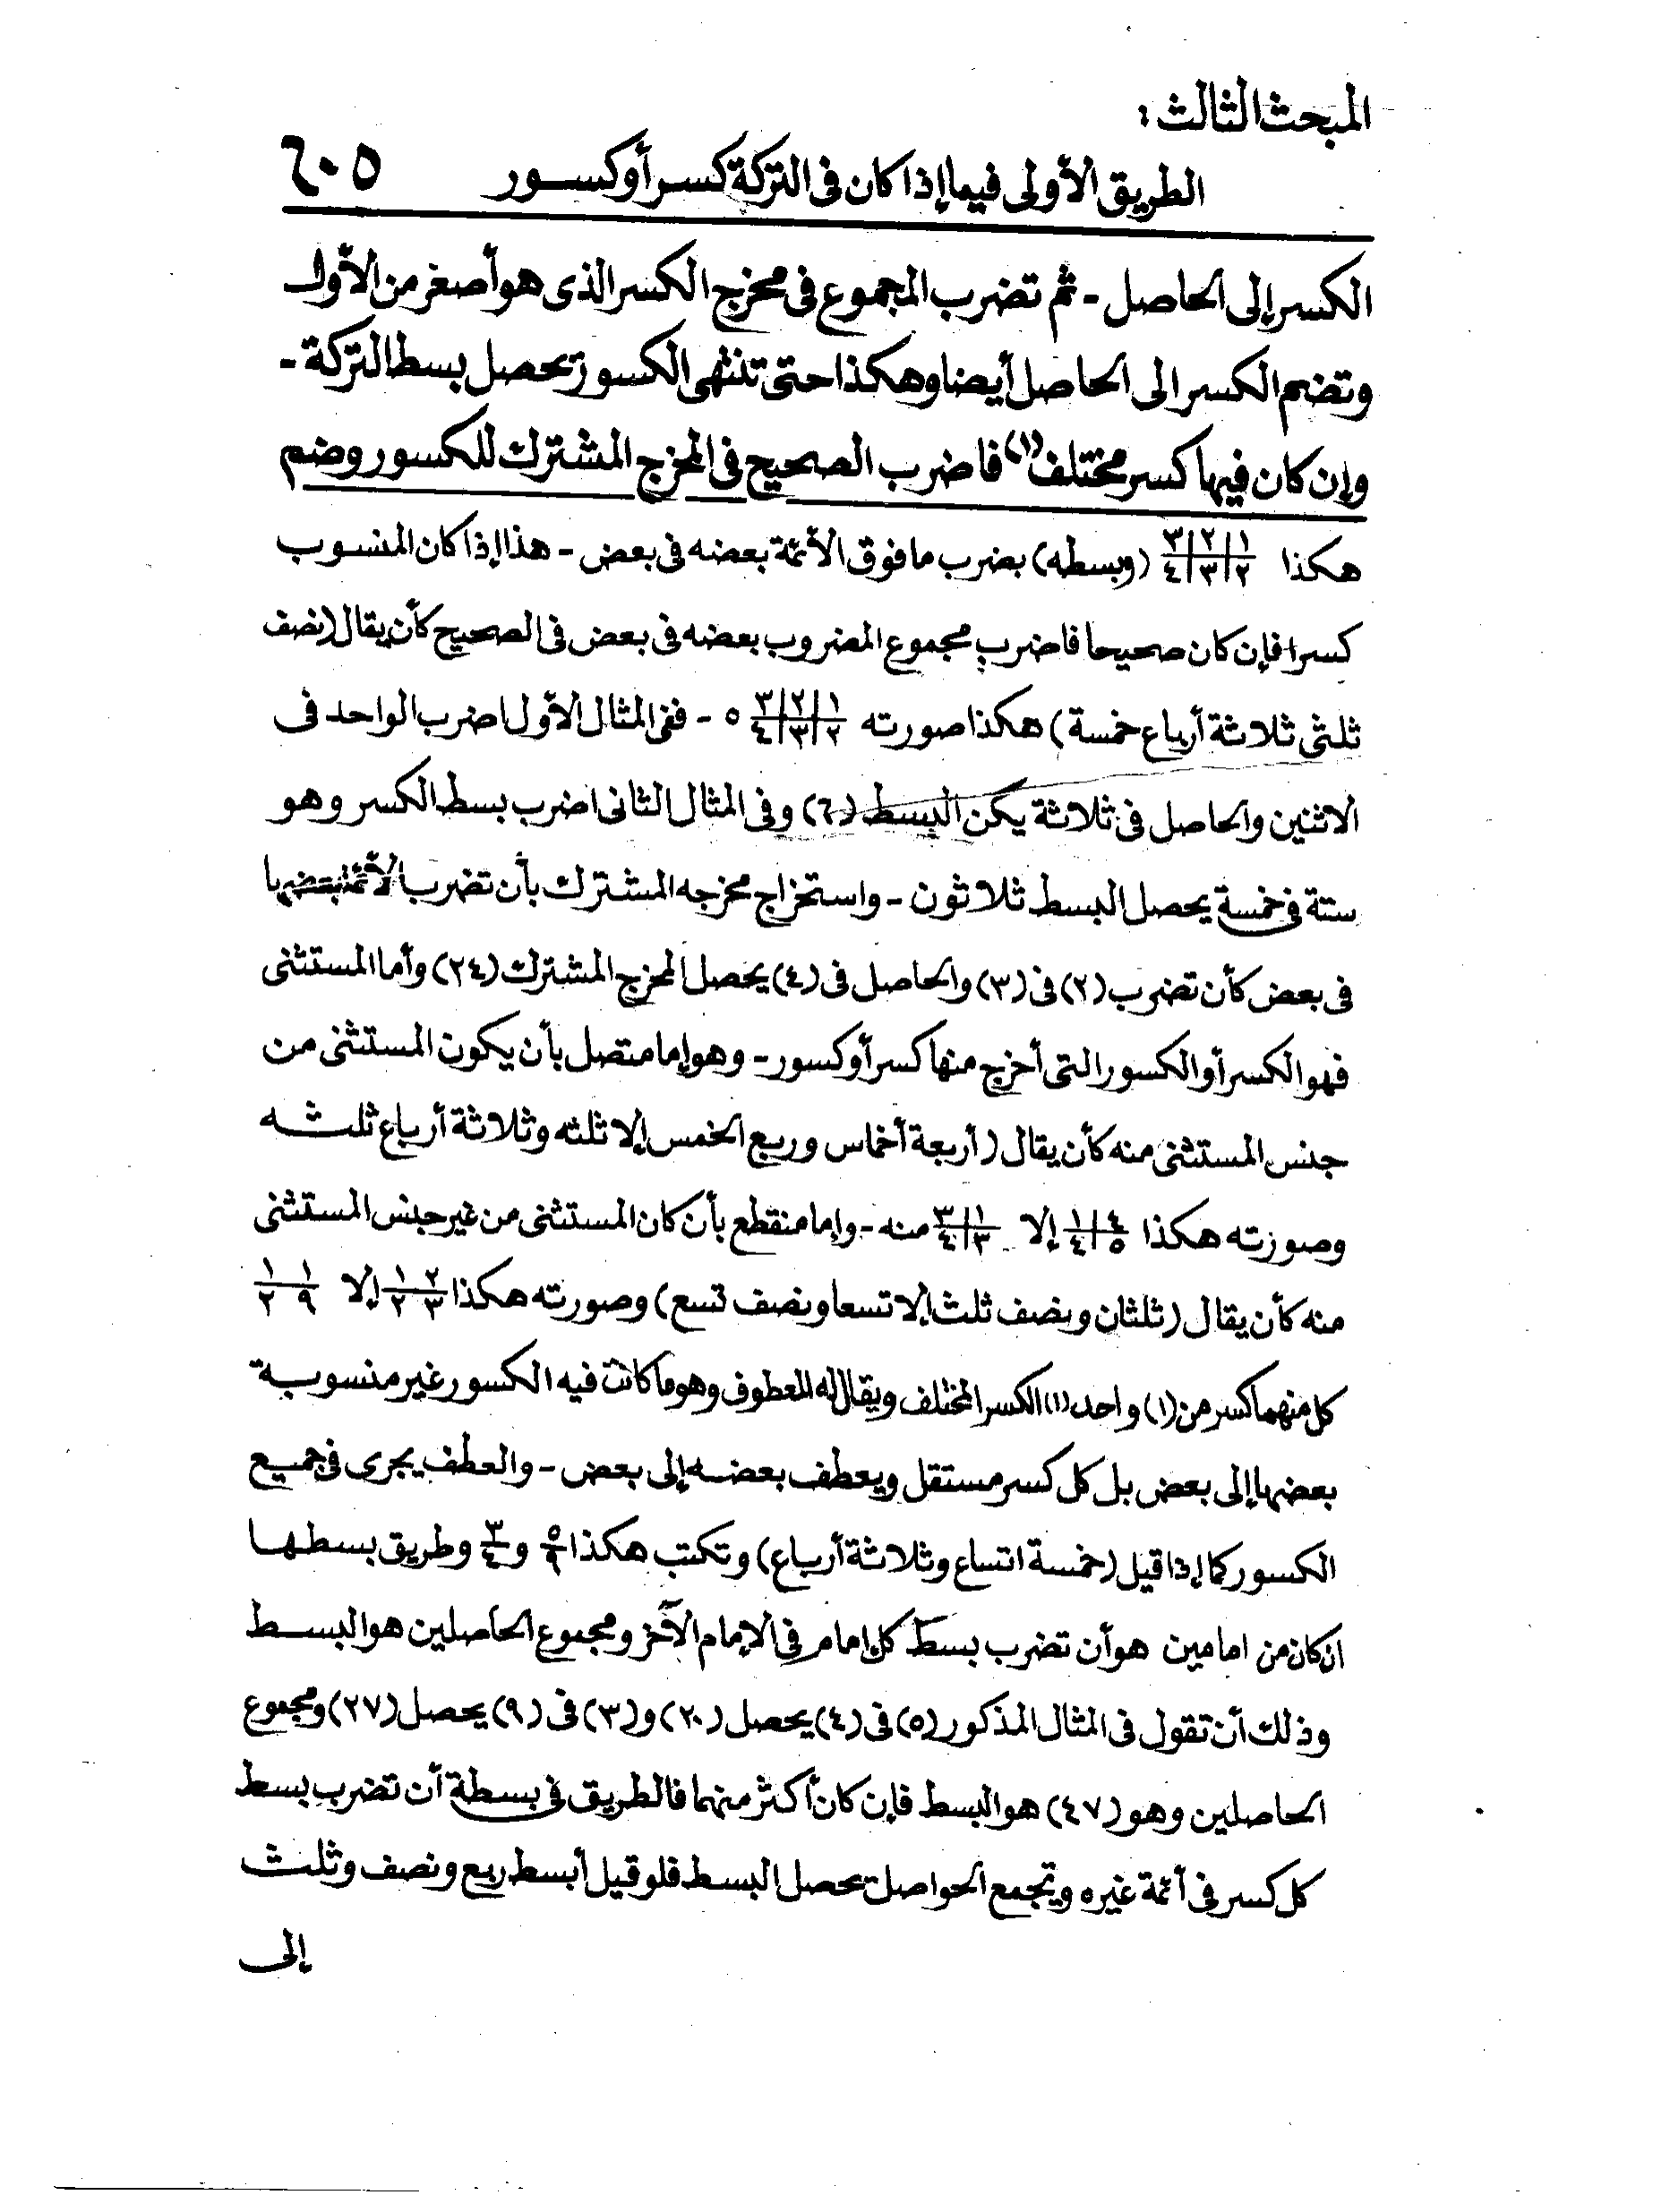 المبحث الثالث :
الطريق الأولى فيما إذا كان فى التركة كسر أو كسور ٦٠٥
الكسر إلى الحاصل - ثم تضرب المجموع فى مخرج الكسر الذى هو أصغر من الأول
وتضم الكسر الى الحاصل أيضا وهكذا حتى تنتهى الكسور يحصل بسط التركة -
وإن كان فيها كسر مختلف (١) فاضرب الصحيح فى المخرج المشترك للكسور وضم
هكذا ١/٢ | ٢/٣ | ٣/٤ (وبسطه) بضرب ما فوق الأئمة بعضه فى بعض - هذا إذا كان المنسوب
كسرا فإن كان صحيحا فاضرب مجموع المضروب بعضه فى بعض فى الصحيح كأن يقال (نصف
ثلثى ثلاثة أرباع خمسة) هكذا صورته ١/٢ | ٢/٣ | ٣/٤ ٥ - ففى المثال الأول اضرب الواحد فى
الاثنين والحاصل فى ثلاثة يكن البسط (٦) وفى المثال الثانى اضرب بسط الكسر وهو
ستة فى خمسة يحصل البسط ثلاثون - واستخراج مخرجه المشترك بأن تضرب الأئمة بعضها
فى بعض كأن تضرب (٢) فى (٣) والحاصل فى (٤) يحصل المخرج المشترك (٢٤) وأما المستثنى
فهو الكسر أو الكسور التى أخرج منها كسر أو كسور - وهو إما متصل بأن يكون المستثنى من
جنس المستثنى منه كأن يقال (أربعة أخماس وربع الخمس إلا ثلثه وثلاثة أرباع ثلثه
وصورته هكذا ٤/٥ | ١/٤ إلا ١/٣ | ٣/٤ منه - وإما منقطع بأن كان المستثنى من غير جنس المستثنى
منه كأن يقال (ثلثان ونصف ثلث إلا تسعا ونصف تسع) وصورته هكذا ٢/٣ ١/٢ إلا ١/٩ ١/٢
كل منهما كسر من (١) واحد (١) الكسر المختلف ويقال له المعطوف وهو ما كانت فيه الكسور غير منسوبة
بعضها إلى بعض بل كل كسر مستقل ويعطف بعضه إلى بعض - والعطف يجرى فى جميع
الكسور كما إذا قيل (خمسة اتساع وثلاثة أرباع) وتكتب هكذا ٥/٩ و ٣/٤ وطريق بسطها
ان كان من امامين هو أن تضرب بسط كل إمام فى الإمام الآخر ومجموع الحاصلين هو البسط
وذلك أن تقول فى المثال المذكور (٥) فى (٤) يحصل (٢٠) و(٣) فى (٩) يحصل (٢٧) ومجموع
الحاصلين وهو (٤٧) هو البسط فإن كان أكثر منهما فالطريق فى بسطة أن تضرب بسط
كل كسر فى أئمة غيره وتجمع الحواصل يحصل البسط فلو قيل أبسط ربع ونصف وثلث
إلى